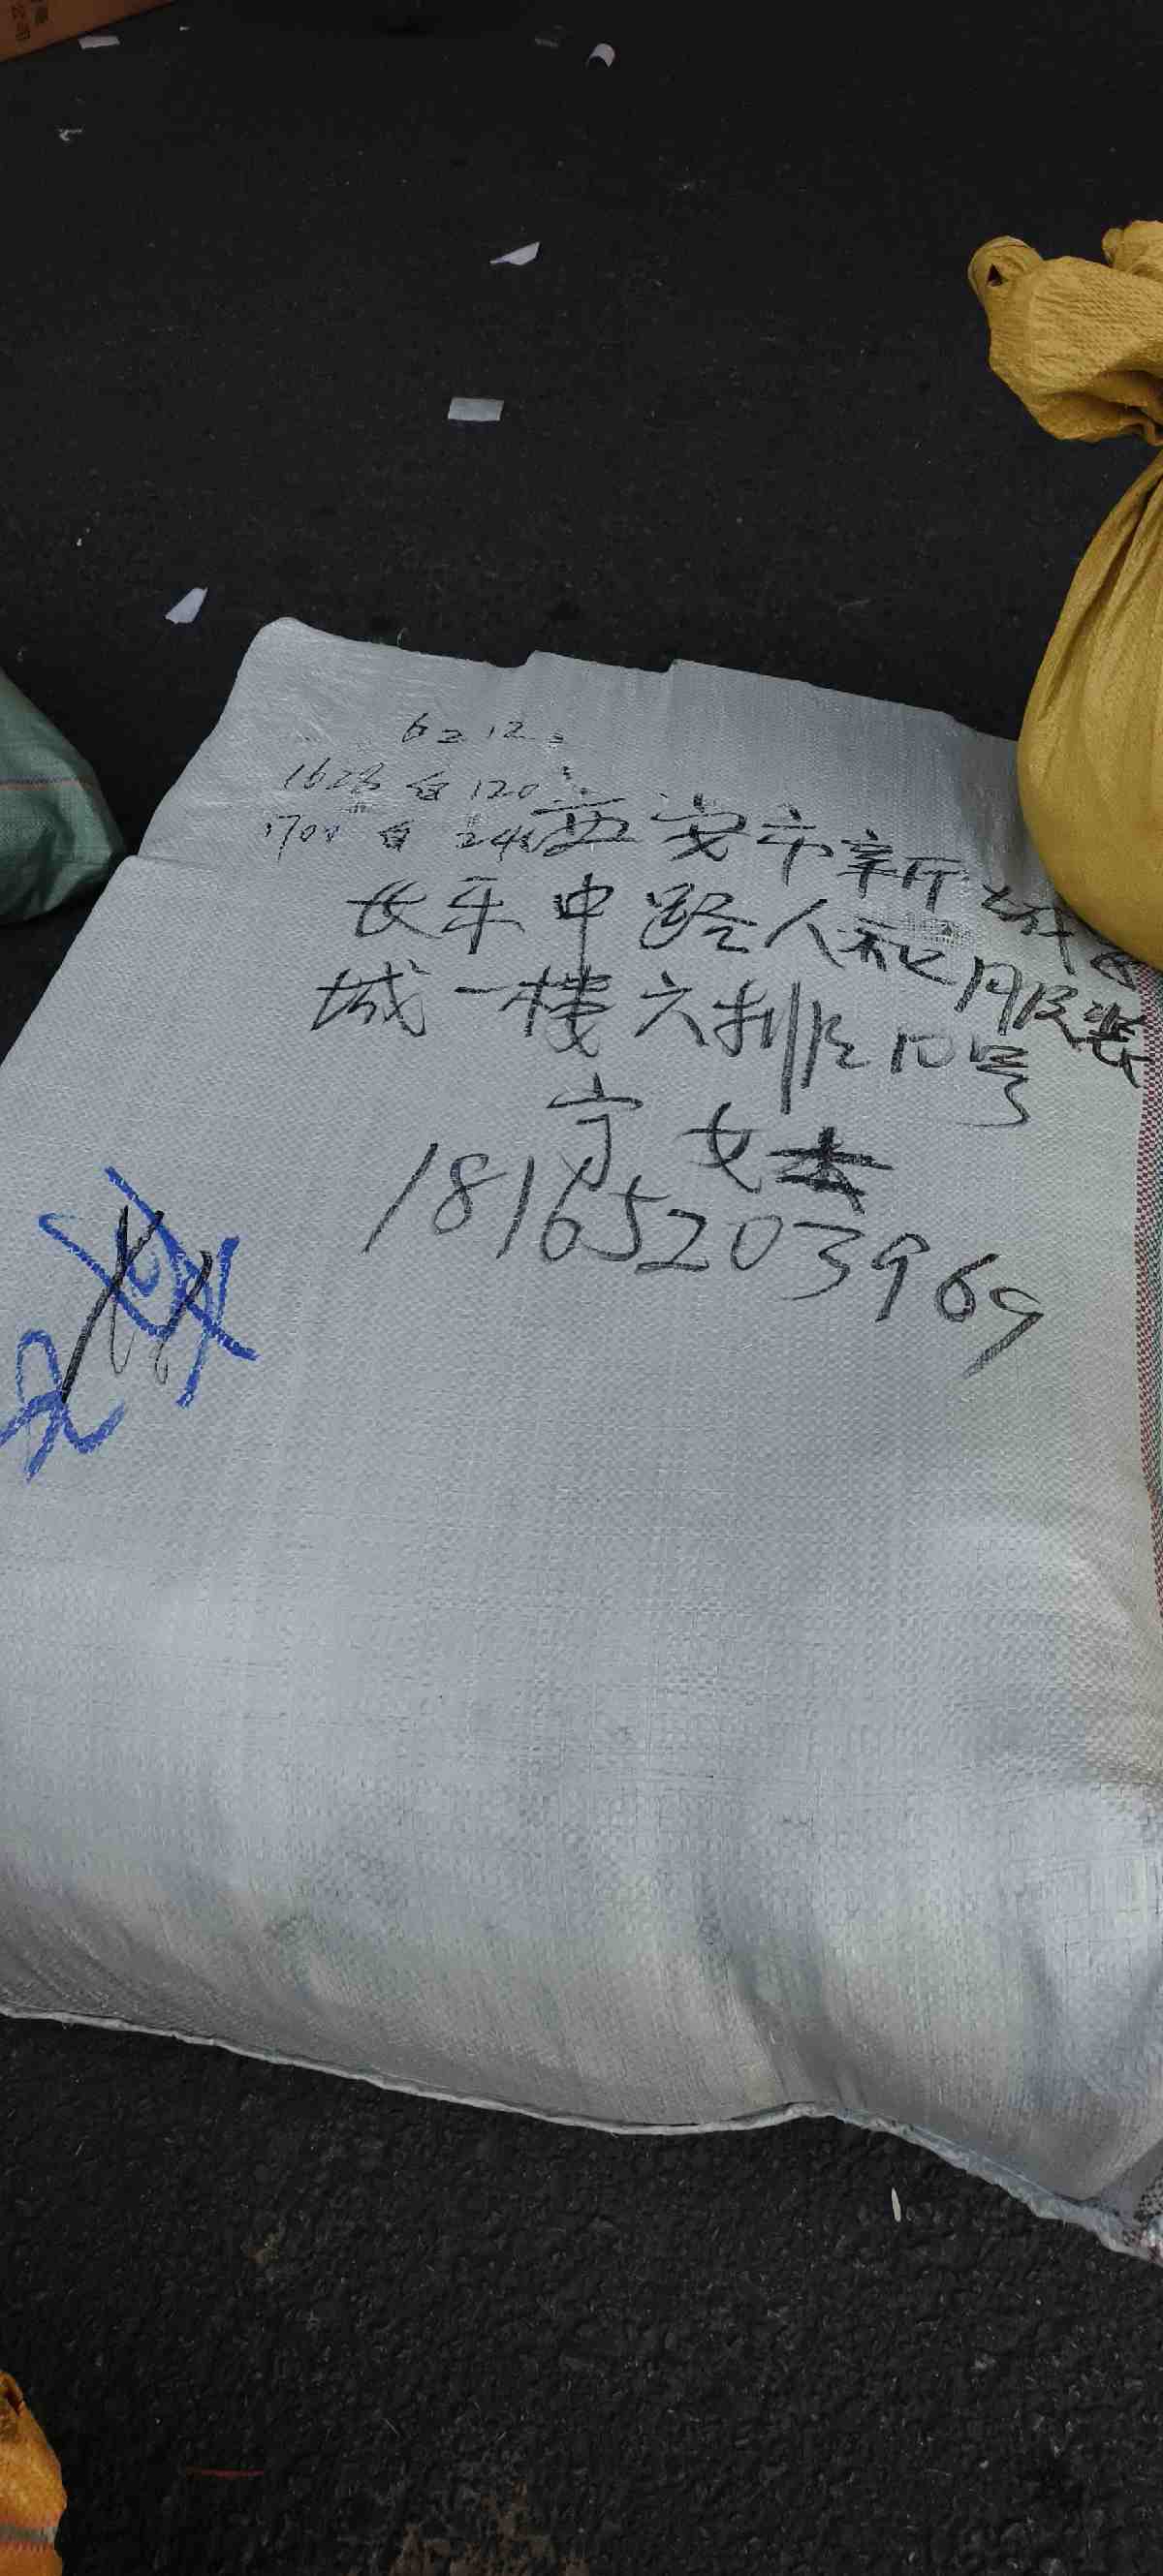 6 = 12 =
1628 白 120
1700 白 240
西安市新城区
长乐中路人和服装
城一楼六排区10号
宁女士
18165203969